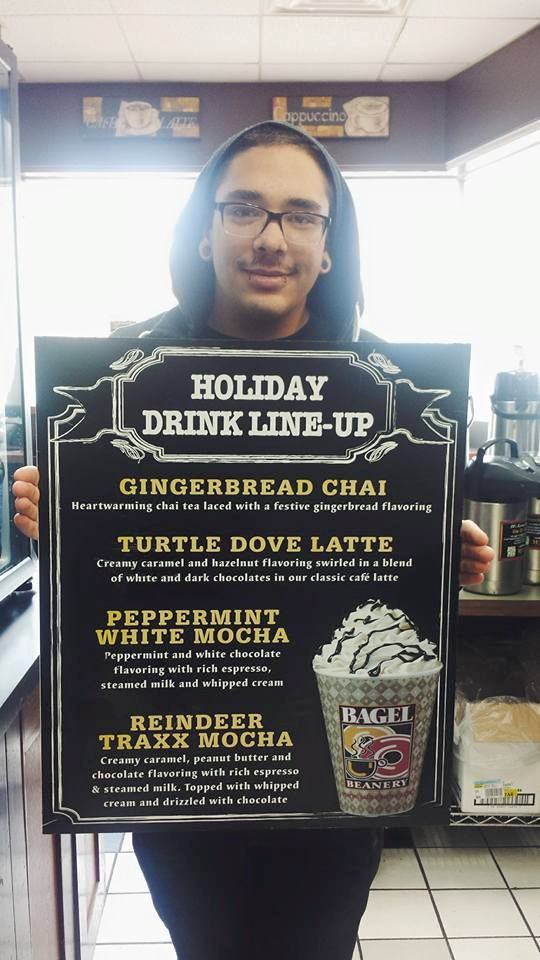 CAFÉ LATTE
Cappuccino
HOLIDAY
DRINK LINE-UP
GINGERBREAD CHAI
Heartwarming chai tea laced with a festive gingerbread flavoring
TURTLE DOVE LATTE
Creamy caramel and hazelnut flavoring swirled in a blend
of white and dark chocolates in our classic café latte
PEPPERMINT
WHITE MOCHA
Peppermint and white chocolate
flavoring with rich espresso,
steamed milk and whipped cream
REINDEER
TRAXX MOCHA
Creamy caramel, peanut butter and
chocolate flavoring with rich espresso
& steamed milk. Topped with whipped
cream and drizzled with chocolate
BAGEL
BEANERY